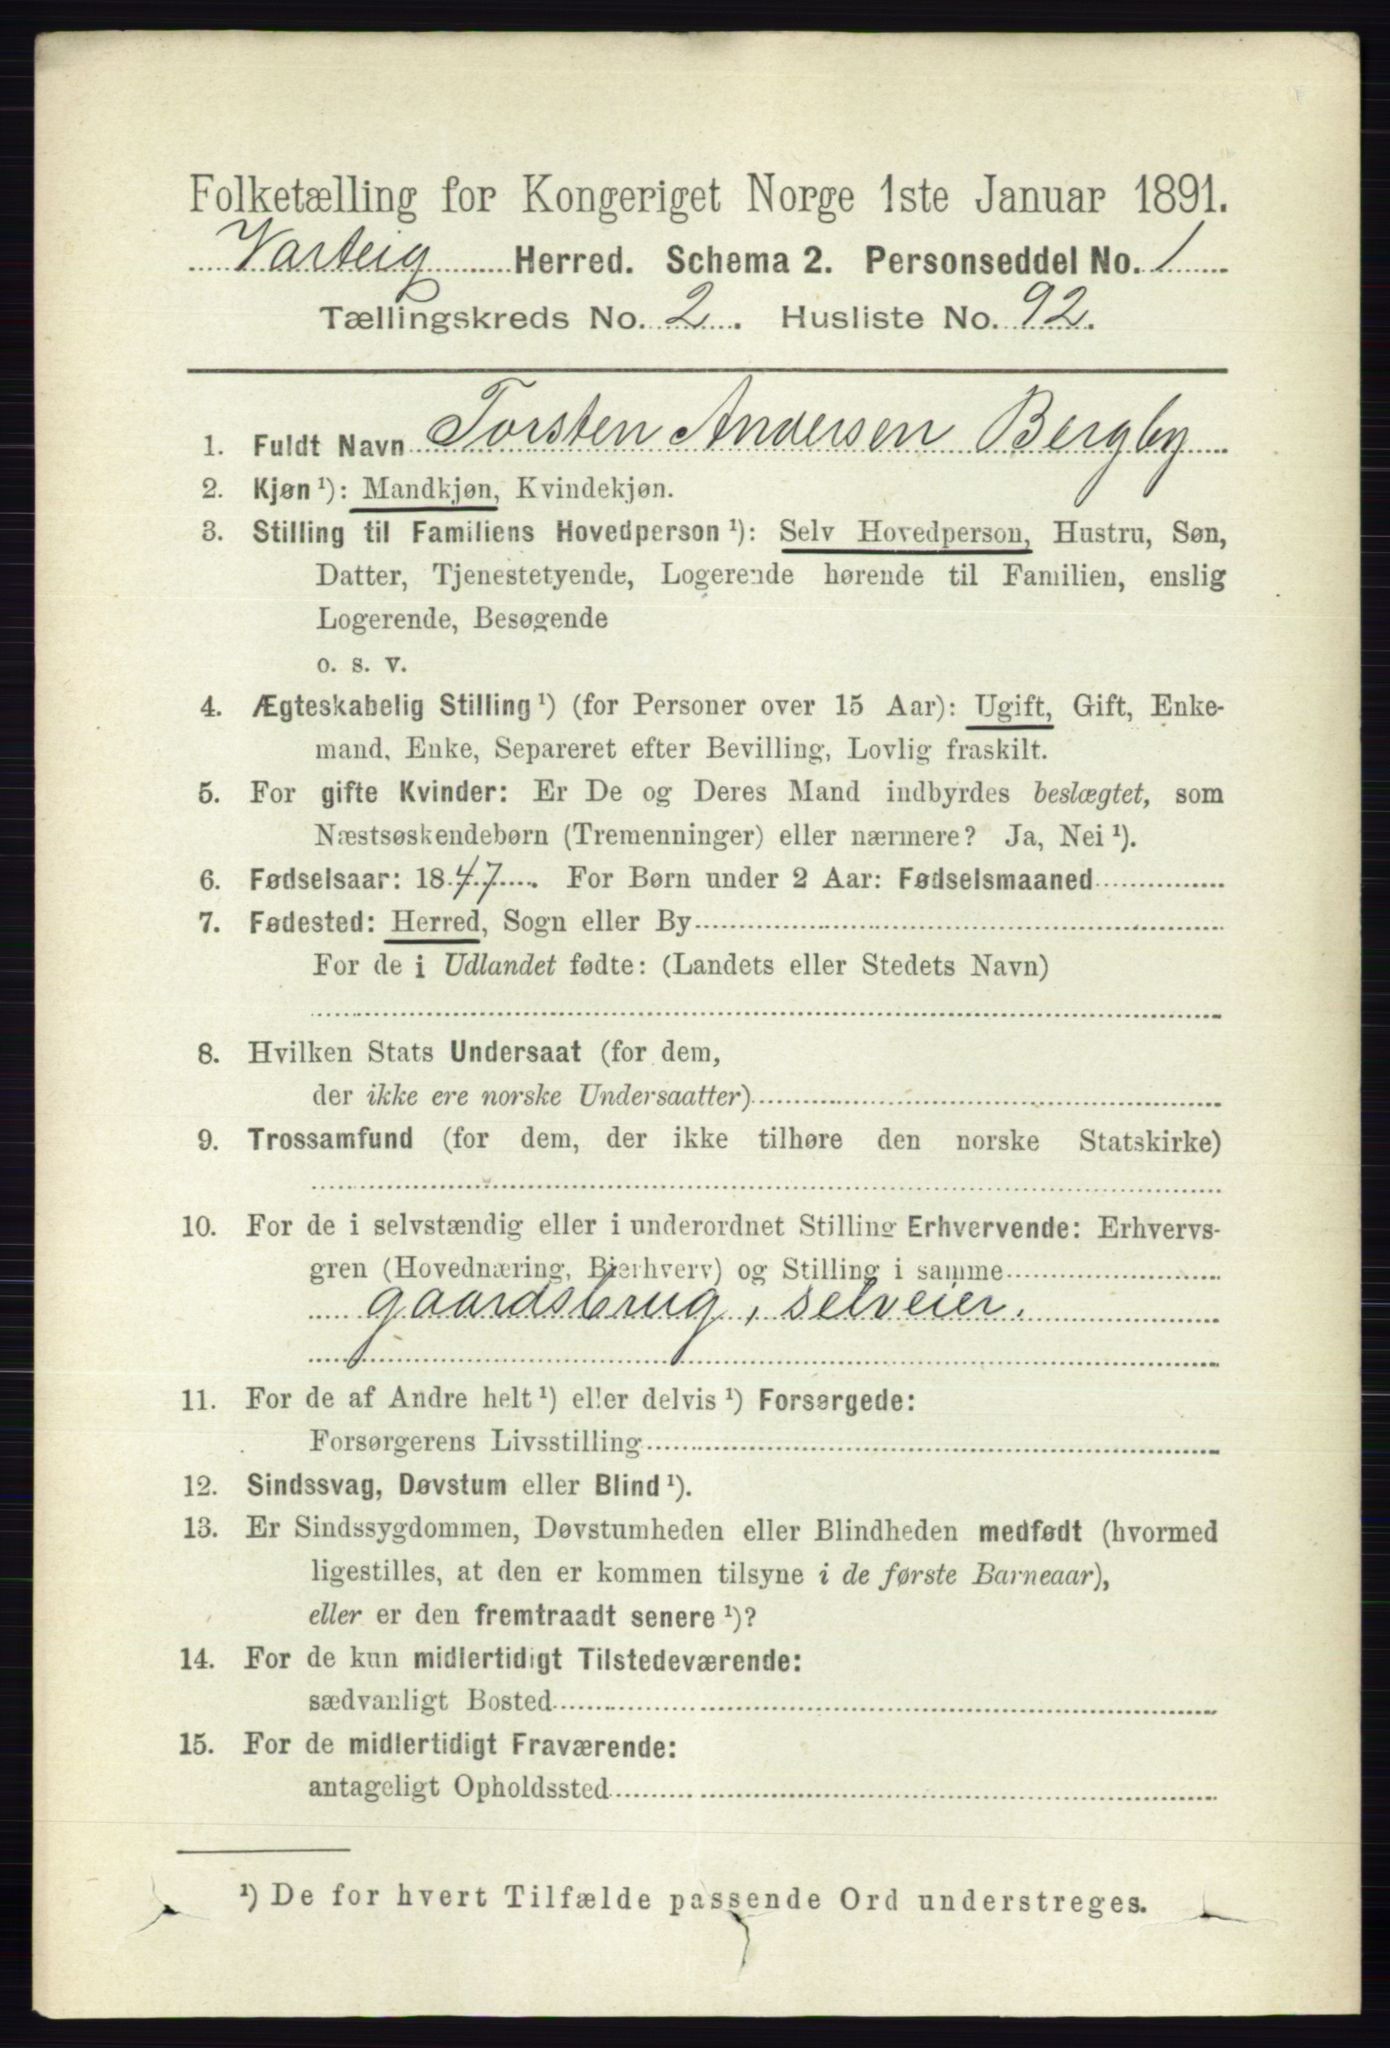 Folketælling for Kongeriget Norge 1ste Januar 1891.
Varteig Herred. Schema 2. Personseddel No. 1
Tællingskreds No. 2. Husliste No. 92.
1. Fuldt Navn Torsten Andersen Bergby
2. Kjøn ¹): Mandkjøn, Kvindekjøn.
3. Stilling til Familiens Hovedperson ¹): Selv Hovedperson, Hustru, Søn,
Datter, Tjenestetyende, Logerende hørende til Familien, enslig
Logerende, Besøgende
o. s. v.
4. Ægteskabelig Stilling ¹) (for Personer over 15 Aar): Ugift, Gift, Enke-
mand, Enke, Separeret efter Bevilling, Lovlig fraskilt.
5. For gifte Kvinder: Er De og Deres Mand indbyrdes beslægtet, som
Næstsøskendebørn (Tremenninger) eller nærmere? Ja, Nei ¹).
6. Fødselsaar: 1847. For Børn under 2 Aar: Fødselsmaaned
7. Fødested: Herred, Sogn eller By
For de i Udlandet fødte: (Landets eller Stedets Navn)
8. Hvilken Stats Undersaat (for dem,
der ikke ere norske Undersaatter)
9. Trossamfund (for dem, der ikke tilhøre den norske Statskirke)
10. For de i selvstændig eller i underordnet Stilling Erhvervende: Erhvervs-
gren (Hovednæring, Bierhverv) og Stilling i samme
gaardsbrug, selveier.
11. For de af Andre helt ¹) eller delvis ¹) Forsørgede:
Forsørgerens Livsstilling
12. Sindssvag, Døvstum eller Blind ¹).
13. Er Sindssygdommen, Døvstumheden eller Blindheden medfødt (hvormed
ligestilles, at den er kommen tilsyne i de første Barneaar),
eller er den fremtraadt senere ¹)?
14. For de kun midlertidigt Tilstedeværende:
sædvanligt Bosted
15. For de midlertidigt Fraværende:
antageligt Opholdssted
¹) De for hvert Tilfælde passende Ord understreges.